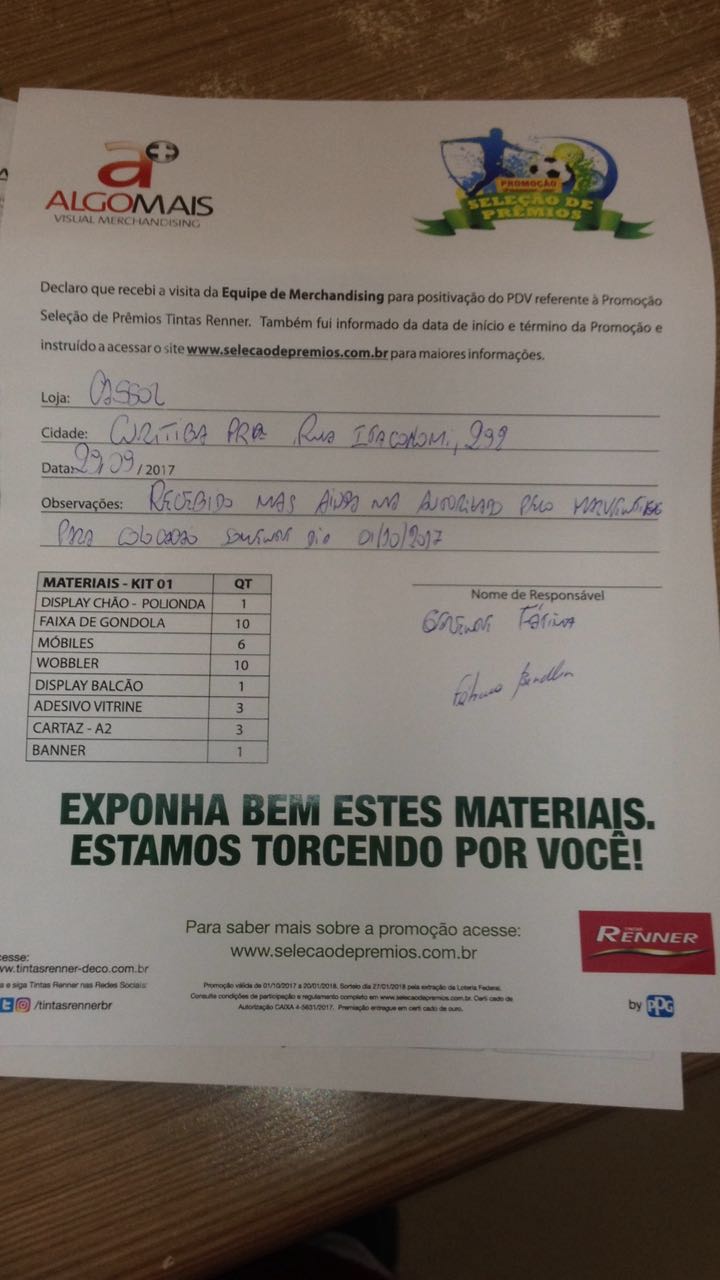 a+
ALGOMAIS
VISUAL MERCHANDISING
PROMOÇÃO
SELEÇÃO DE
PRÊMIOS
Declaro que recebi a visita da Equipe de Merchandising para positivação do PDV referente à Promoção
Seleção de Prêmios Tintas Renner. Também fui informado da data de início e término da Promoção e
instruído a acessar o site www.selecaodepremios.com.br para maiores informações.
Loja: CASSOL
Cidade: CURITIBA Rua 299
Data: 29/09 / 2017
Observações: RECEBIDO MAS AINDA AUTORIZADO PELO
PARA DIA 01/10/2017
MATERIAIS - KIT 01 QT
DISPLAY CHÃO - POLIONDA 1
FAIXA DE GONDOLA 10
MÓBILES 6
WOBBLER 10
DISPLAY BALCÃO 1
ADESIVO VITRINE 3
CARTAZ - A2 3
BANNER 1
Nome de Responsável
FÁTIMA
EXPONHA BEM ESTES MATERIAIS.
ESTAMOS TORCENDO POR VOCÊ!
Para saber mais sobre a promoção acesse:
www.selecaodepremios.com.br
TINTAS
RENNER
by PPG
cesse:
ww.tintasrenner-deco.com.br
a e siga Tintas Renner nas Redes Sociais:
/tintasrennerbr
Promoção válida de 01/10/2017 a 20/01/2018. Sorteio dia 27/01/2018 pela extração da Loteria Federal.
Consulte condições de participação e regulamento completo em www.selecaodepremios.com.br. Certi cado de
Autorização CAIXA 4-5631/2017. Premiação entregue em certi cado de ouro.